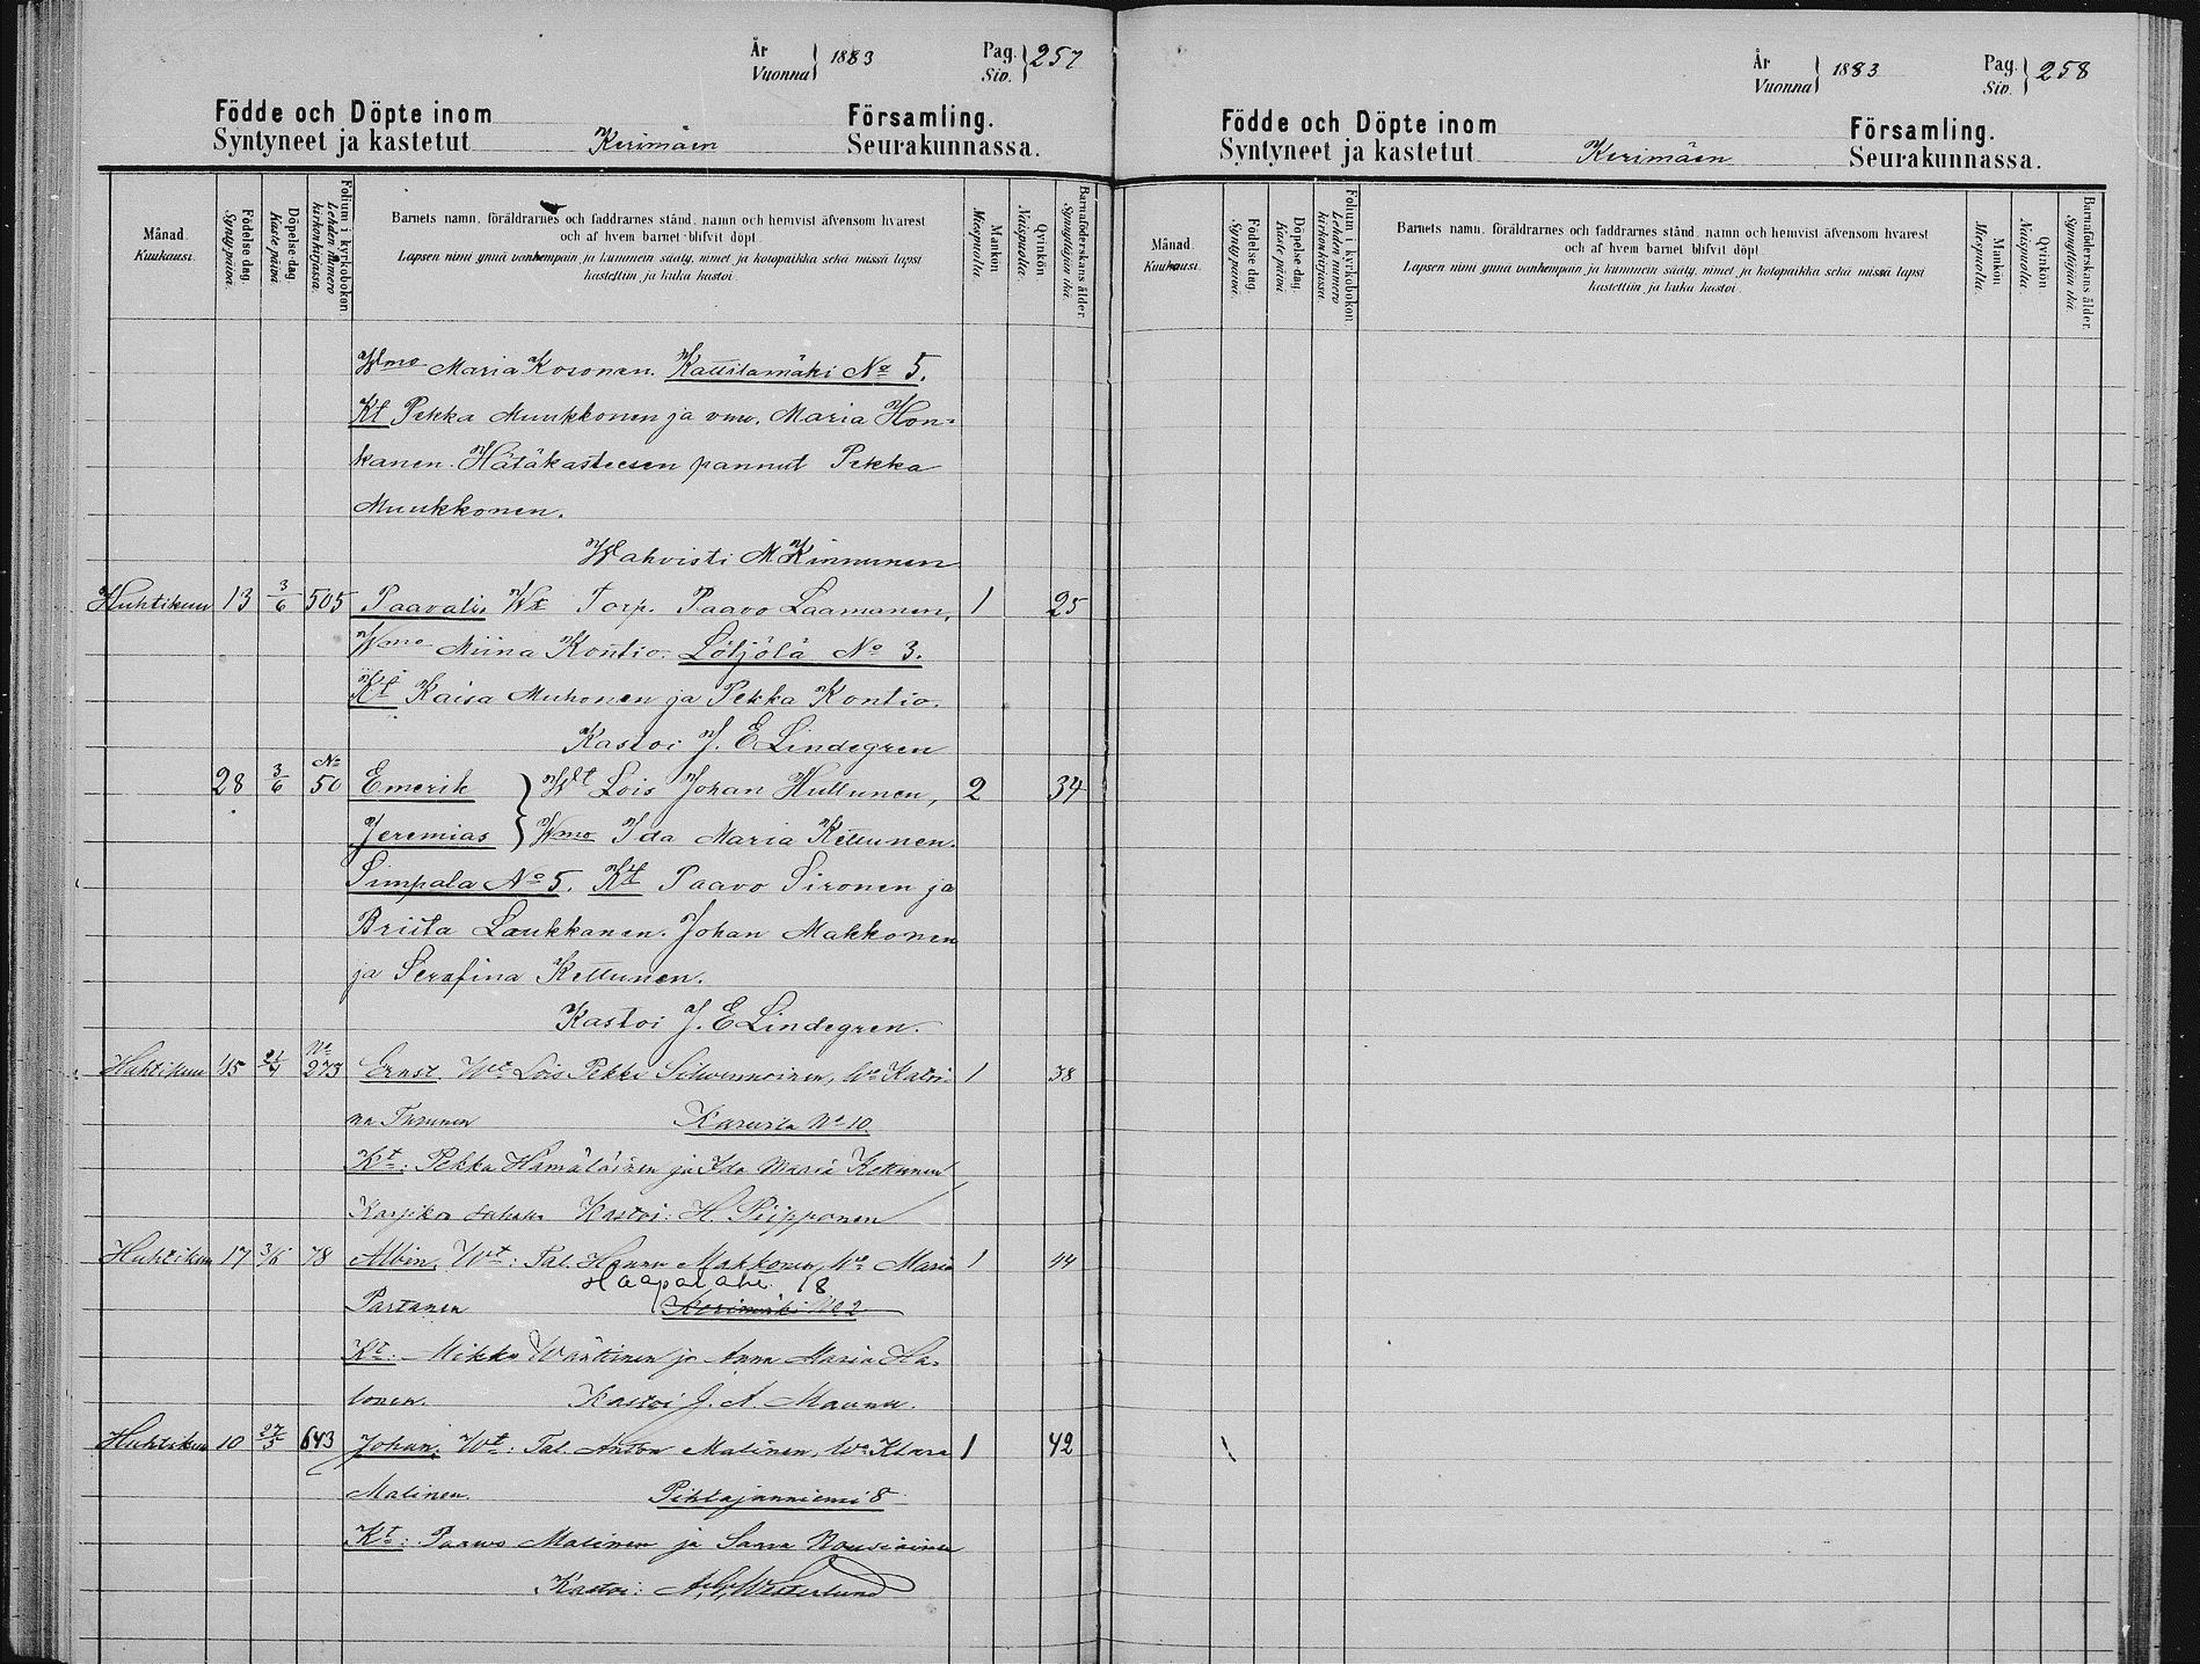 År Vuonna } 1883 Pag. Siv. } 257
Födde och Döpte inom Församling.
Syntyneet ja kastetut Kerimäen Seurakunnassa.
Månad. Kuukausi.
Födelse dag. Synty päivä.
Döpelse dag. Kaste päivä.
Folium i kyrkobokon Lehden numero kirkonkirjassa.
Barnets namn, föräldrarnes och faddrarnes stånd, namn och hemvist äfvensom hvarest
och af hvem barnet blifvit döpt.
Lapsen nimi ynnä vanhempain ja kummein sääty, nimet ja kotopaikka sekä missä lapsi
kastettiin ja kuka kastoi.
Mankön Miespuolia.
Qvinkön. Naispuolia.
Barnaföderskans ålder. Synnyttäjän ikä.
Wmo Maria Kosonen. Kattilamäki No 5.
Kt Pekka Muukkonen ja vmo. Maria Hon=
kanen. Hätäkasteesen pannut Pekka
Muukkonen.
Wahvisti M Kinnunen
Huhtikuu 13 3/6 505 Paavali. Wt Torp. Paavo Laamanen, 1 25
Wmo Miina Kontio. Lötjölä No 3.
Kt Kaisa Muhonen ja Pekka Kontio.
Kastoi J. E Lindegren
28 3/6 No 50 Emerik } Wt Lois Johan Huttunen, 2 34
Jeremias } Wmo Ida Maria Kettunen.
Simpala No 5. Kt Paavo Sironen ja
Briita Laukkanen. Johan Makkonen
ja Serafina Kettunen.
Kastoi J. E Lindegren.
Huhtikuu 15 21/4 No 273 Ernst. Wt Lois Pekka Silvennoinen, Wo Katri= 1 38
na Turunen No 10.
Kt: Pekka Hämäläinen ja Ida Maria Kettunen
Kastoi: H. Piipponen
Huhtikuu 17 3/6 78 Albin, Wt: Tal. Hannu Makkonen, Wo Maria 1 44
Haapalahe. 18
Partanen Kerimäki No 2
Kt: Mikko Wänttinen ja Anna Maria Ha=
lonen. Kastoi J. A. Maunu.
Huhtikuu 10 27/5 643 Johan, Wt: Tal. Anton Malinen, Wo Klara 1 42
Malinen. Pihlajanniemi 8
Kt: Paavo Malinen ja Sanna Nousiainen
Kastoi: Westerlund
År Vuonna } 1883 Pag. Siv. } 258
Födde och Döpte inom Församling.
Syntyneet ja kastetut Kerimäen Seurakunnassa.
Månad. Kuukausi.
Födelse dag. Synty päivä.
Döpelse dag. Kaste päivä.
Folium i kyrkobokon Lehden numero kirkonkirjassa.
Barnets namn, föräldrarnes och faddrarnes stånd, namn och hemvist äfvensom hvarest
och af hvem barnet blifvit döpt.
Lapsen nimi ynnä vanhempain ja kummein sääty, nimet ja kotopaikka sekä missä lapsi
kastettiin ja kuka kastoi.
Mankön Miespuolia.
Qvinkön. Naispuolia.
Barnaföderskans ålder. Synnyttäjän ikä.